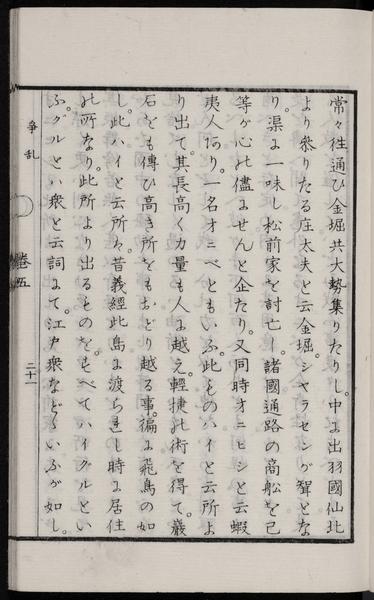 常々往通ひ金堀共大勢集りたりし。中に出羽國仙北
より参りたる庄太夫と云金堀。シヤラセンが聟とな
り。渠に一味し松前家を討亡し。諸國通路の商舩を己
等が心の儘にせんと企たり。又同時オニヒシと云蝦
夷人あり。一名オニベともいふ。此ものハイと云所よ
り出て。其長高く力量も人に越え。輕捷の術を得て。巖
石をも傳ひ高き所をもおどり越る事。偏に飛鳥の如
し。此ハイと云所ハ。昔義經此島に渡られし時に居住
の所なり。此所より出るものを。すべてハイグルとい
ふ。グルとハ衆と云詞にて。江戸衆などゝいふが如し。
爭乱
巻五
二十一